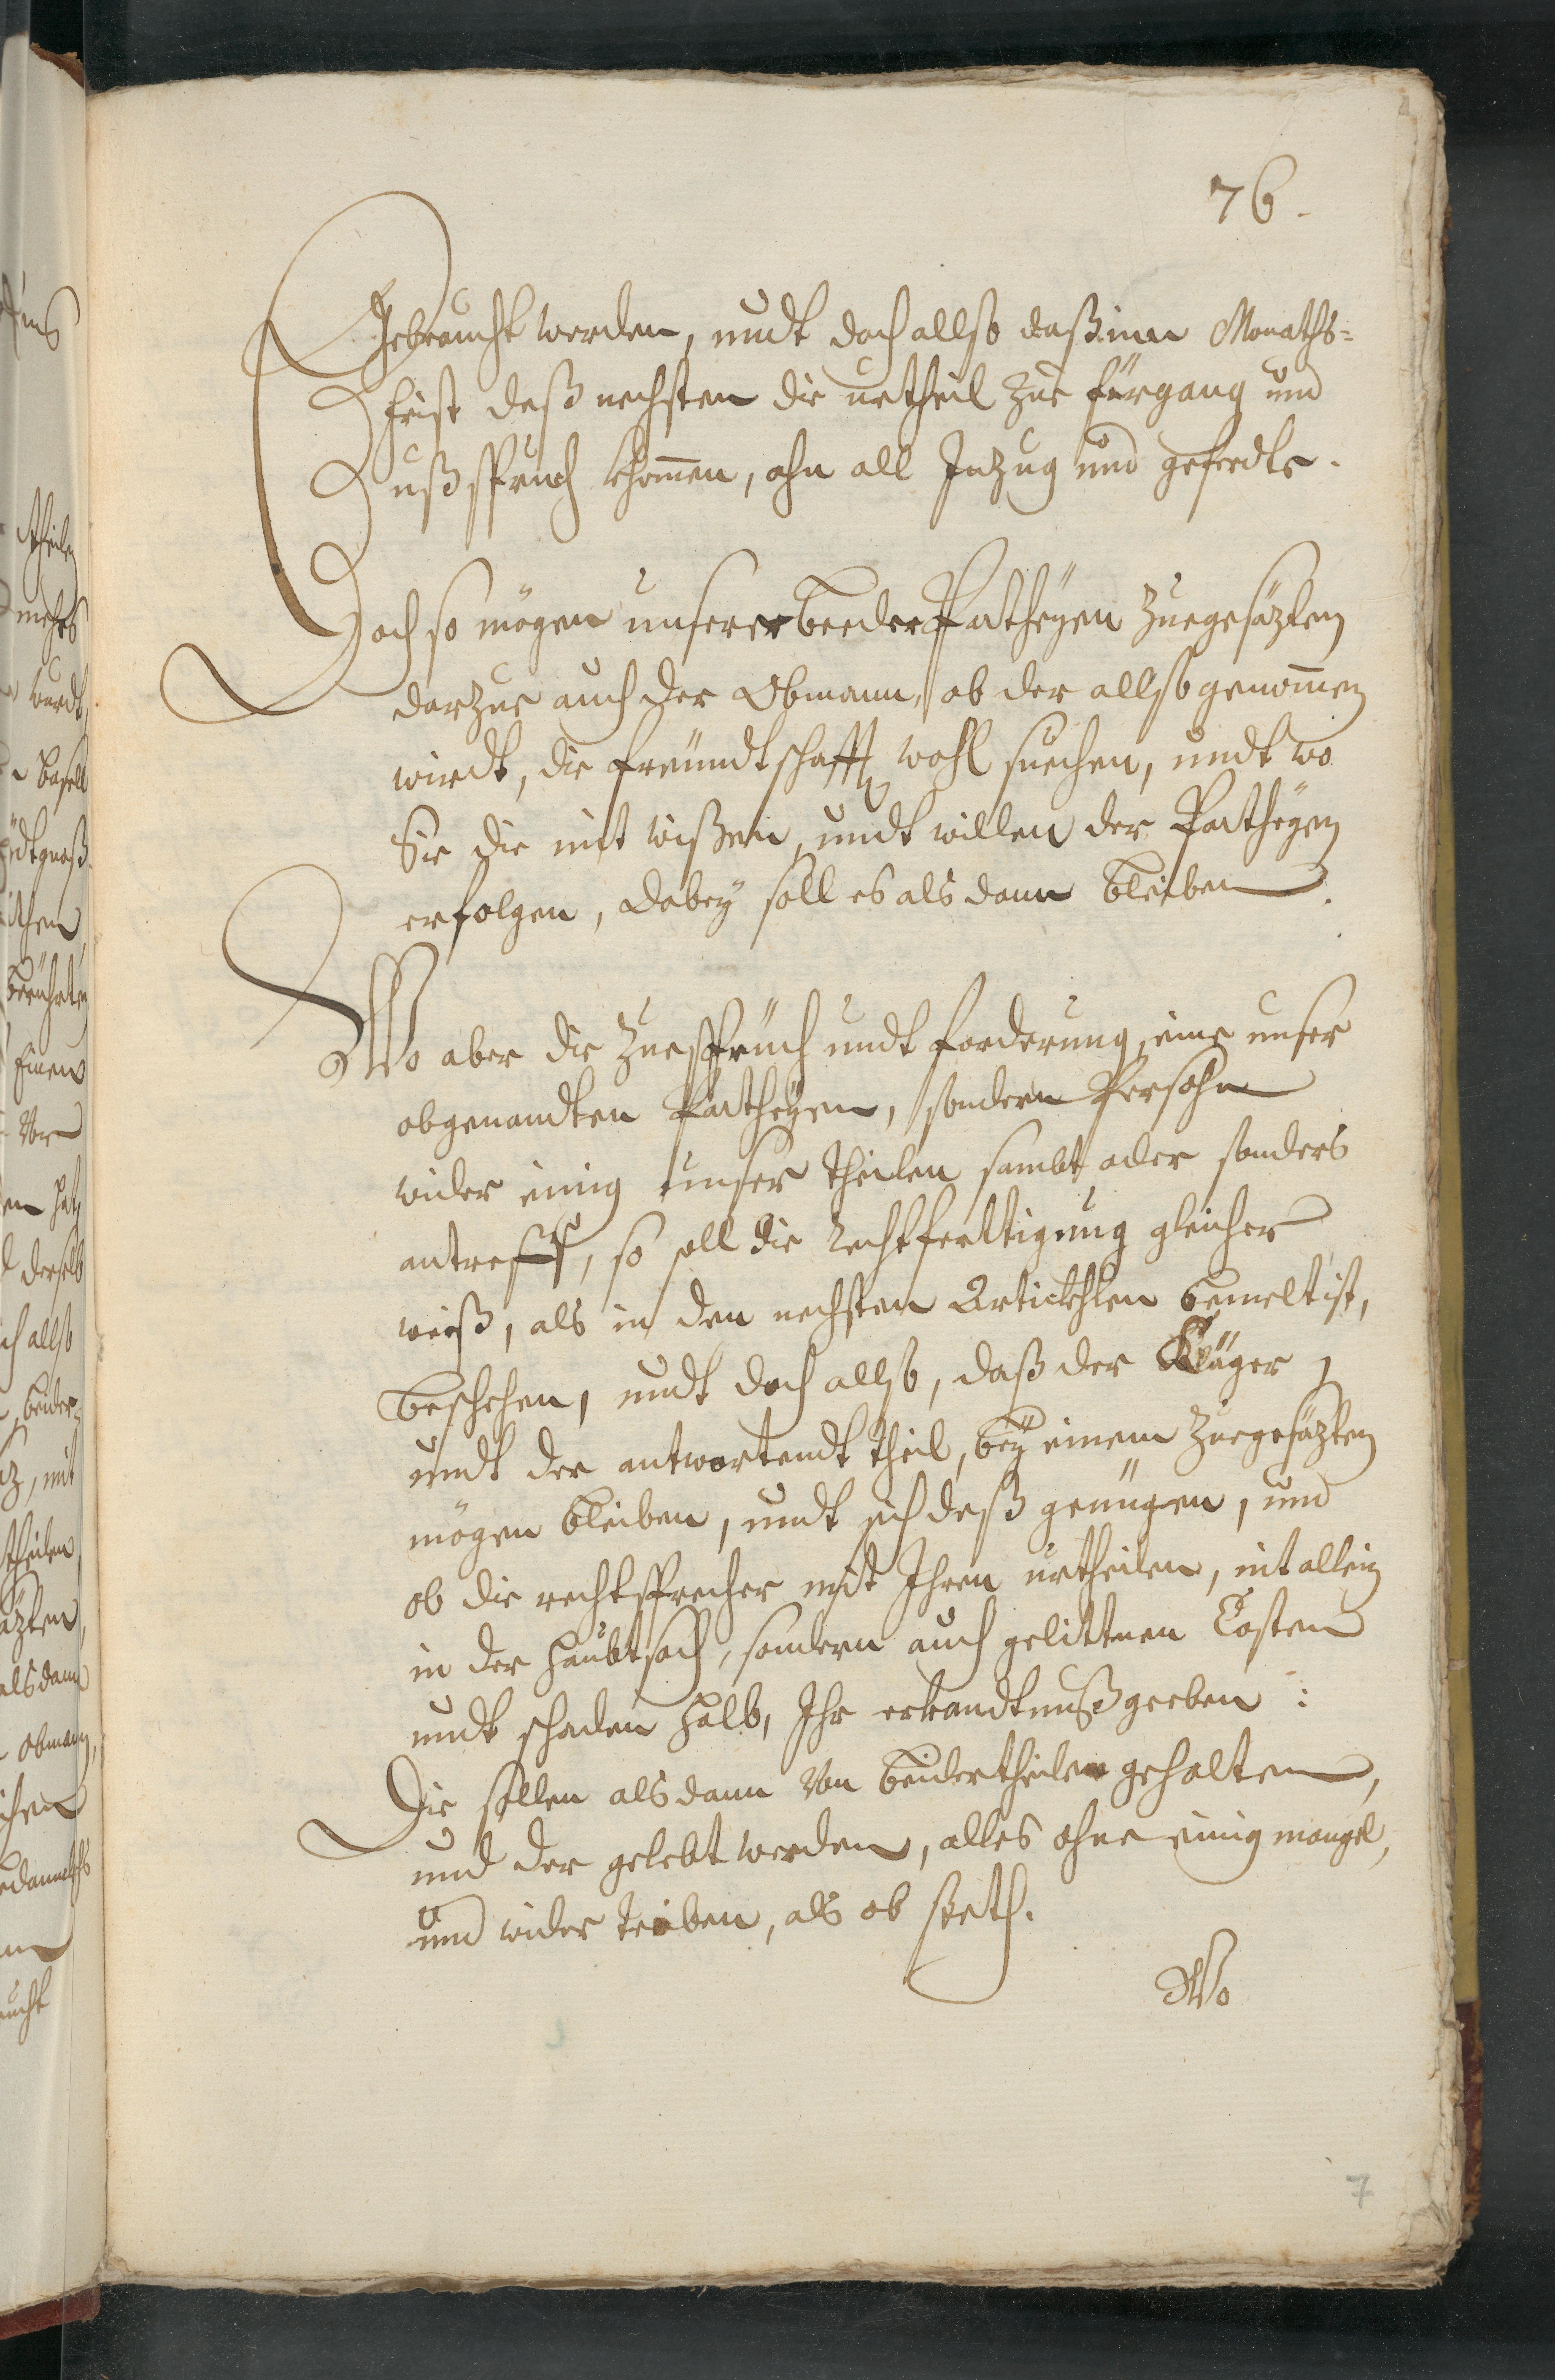 76.
Gebraucht werden, undt doch allso daß inn Monaths=
frist deß nechsten die urtheil zue fürgang und
Außspruch khommen, ohn all Inzug und geferdte.
Doch so mögen unserer beeder Partheyen zuegesäzten
darzue auch der Obmann, ob der allso genommen
wirdt, die freündtschafft wohl suechen, undt wo
Sie die mit wißen, undt willen der Partheyen
erfolgen, dabey soll es als dann bleiben.
Wo aber die Zuesprüch undt forderung, eine unser
obgenandten Partheyen, sondern Persohn
wider einig unser theilen sambt oder sonders
antreff, so soll die rechtferttigung gleicher
weiß, als in den nechsten Articklen bemelt ist,
beschehen, undt doch allso, daß der Kläger
undt der antwortendt theil, bey einem Zuegesäzten
mögen bleiben, undt sich deß genüegen, und
ob die rechtsprecher mit Ihren urtheilen, nit allein
in der haubtsach, sondern auch gelittnen Costen
undt schaden halb, Ihr erkandtnuß geeben:
Die sollen alsdann Von beidertheilen gehalten,
und der gelebt werden, alles ohne einig mangel,
und wider treiben, als ob steth.
Wo
7